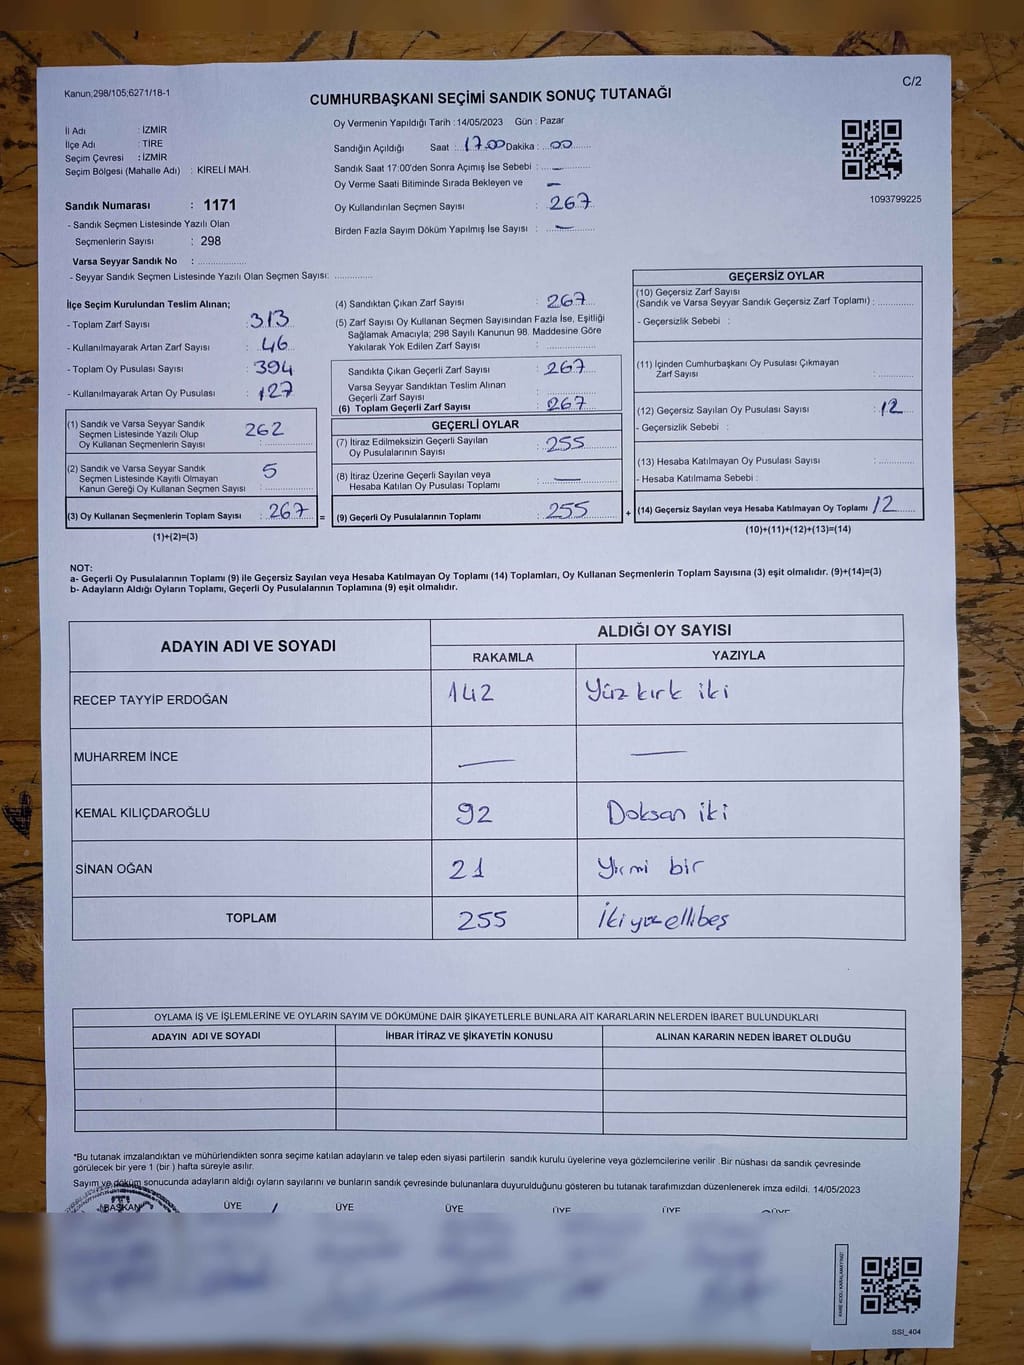 Kanun;298/105;6271/18-1
C/2
CUMHURBAŞKANI SEÇİMİ SANDIK SONUÇ TUTANAĞI
İl Adı : İZMİR
İlçe Adı : TİRE
Seçim Çevresi : İZMİR
Seçim Bölgesi (Mahalle Adı) : KİRELİ MAH.
Oy Vermenin Yapıldığı Tarih :14/05/2023 Gün : Pazar
Sandığın Açıldığı Saat : 17.00 Dakika : 00
Sandık Saat 17:00'den Sonra Açımış İse Sebebi : —
Oy Verme Saati Bitiminde Sırada Bekleyen ve —
Oy Kullandırılan Seçmen Sayısı : 267
Birden Fazla Sayım Döküm Yapılmış İse Sayısı : —
1093799225
Sandık Numarası : 1171
- Sandık Seçmen Listesinde Yazılı Olan
Seçmenlerin Sayısı : 298
Varsa Seyyar Sandık No :
- Seyyar Sandık Seçmen Listesinde Yazılı Olan Seçmen Sayısı:
İlçe Seçim Kurulundan Teslim Alınan;
- Toplam Zarf Sayısı : 313
- Kullanılmayarak Artan Zarf Sayısı : 46
- Toplam Oy Pusulası Sayısı : 394
- Kullanılmayarak Artan Oy Pusulası : 127
(1) Sandık ve Varsa Seyyar Sandık
Seçmen Listesinde Yazılı Olup
Oy Kullanan Seçmenlerin Sayısı : 262
(2) Sandık ve Varsa Seyyar Sandık
Seçmen Listesinde Kayıtlı Olmayan
Kanun Gereği Oy Kullanan Seçmen Sayısı : 5
(3) Oy Kullanan Seçmenlerin Toplam Sayısı : 267 =
(1)+(2)=(3)
(4) Sandıktan Çıkan Zarf Sayısı : 267
(5) Zarf Sayısı Oy Kullanan Seçmen Sayısından Fazla İse, Eşitliği
Sağlamak Amacıyla; 298 Sayılı Kanunun 98. Maddesine Göre
Yakılarak Yok Edilen Zarf Sayısı :
Sandıkta Çıkan Geçerli Zarf Sayısı : 267
Varsa Seyyar Sandıktan Teslim Alınan
Geçerli Zarf Sayısı :
(6) Toplam Geçerli Zarf Sayısı : 267
GEÇERLİ OYLAR
(7) İtiraz Edilmeksizin Geçerli Sayılan
Oy Pusulalarının Sayısı : 255
(8) İtiraz Üzerine Geçerli Sayılan veya
Hesaba Katılan Oy Pusulası Toplamı : —
(9) Geçerli Oy Pusulalarının Toplamı : 255 +
GEÇERSİZ OYLAR
(10) Geçersiz Zarf Sayısı
(Sandık ve Varsa Seyyar Sandık Geçersiz Zarf Toplamı) :
- Geçersizlik Sebebi :
(11) İçinden Cumhurbaşkanı Oy Pusulası Çıkmayan
Zarf Sayısı :
(12) Geçersiz Sayılan Oy Pusulası Sayısı : 12
- Geçersizlik Sebebi :
(13) Hesaba Katılmayan Oy Pusulası Sayısı :
- Hesaba Katılmama Sebebi :
(14) Geçersiz Sayılan veya Hesaba Katılmayan Oy Toplamı 12
(10)+(11)+(12)+(13)=(14)
NOT:
a- Geçerli Oy Pusulalarının Toplamı (9) ile Geçersiz Sayılan veya Hesaba Katılmayan Oy Toplamı (14) Toplamları, Oy Kullanan Seçmenlerin Toplam Sayısına (3) eşit olmalıdır. (9)+(14)=(3)
b- Adayların Aldığı Oyların Toplamı, Geçerli Oy Pusulalarının Toplamına (9) eşit olmalıdır.
ADAYIN ADI VE SOYADI
ALDIĞI OY SAYISI
RAKAMLA YAZIYLA
RECEP TAYYİP ERDOĞAN 142 Yüz kırk iki
MUHARREM İNCE — —
KEMAL KILIÇDAROĞLU 92 Doksan iki
SİNAN OĞAN 21 Yirmi bir
TOPLAM 255 İkiyüzellibeş
OYLAMA İŞ VE İŞLEMLERİNE VE OYLARIN SAYIM VE DÖKÜMÜNE DAİR ŞİKAYETLERLE BUNLARA AİT KARARLARIN NELERDEN İBARET BULUNDUKLARI
ADAYIN ADI VE SOYADI İHBAR İTİRAZ VE ŞİKAYETİN KONUSU ALINAN KARARIN NEDEN İBARET OLDUĞU
*Bu tutanak imzalandıktan ve mühürlendikten sonra seçime katılan adayların ve talep eden siyasi partilerin sandık kurulu üyelerine veya gözlemcilerine verilir .Bir nüshası da sandık çevresinde
görülecek bir yere 1 (bir ) hafta süreyle asılır.
Sayım ve döküm sonucunda adayların aldığı oyların sayılarını ve bunların sandık çevresinde bulunanlara duyurulduğunu gösteren bu tutanak tarafımızdan düzenlenerek imza edildi. 14/05/2023
BAŞKAN ÜYE ÜYE ÜYE ÜYE ÜYE ÜYE
SSI_404